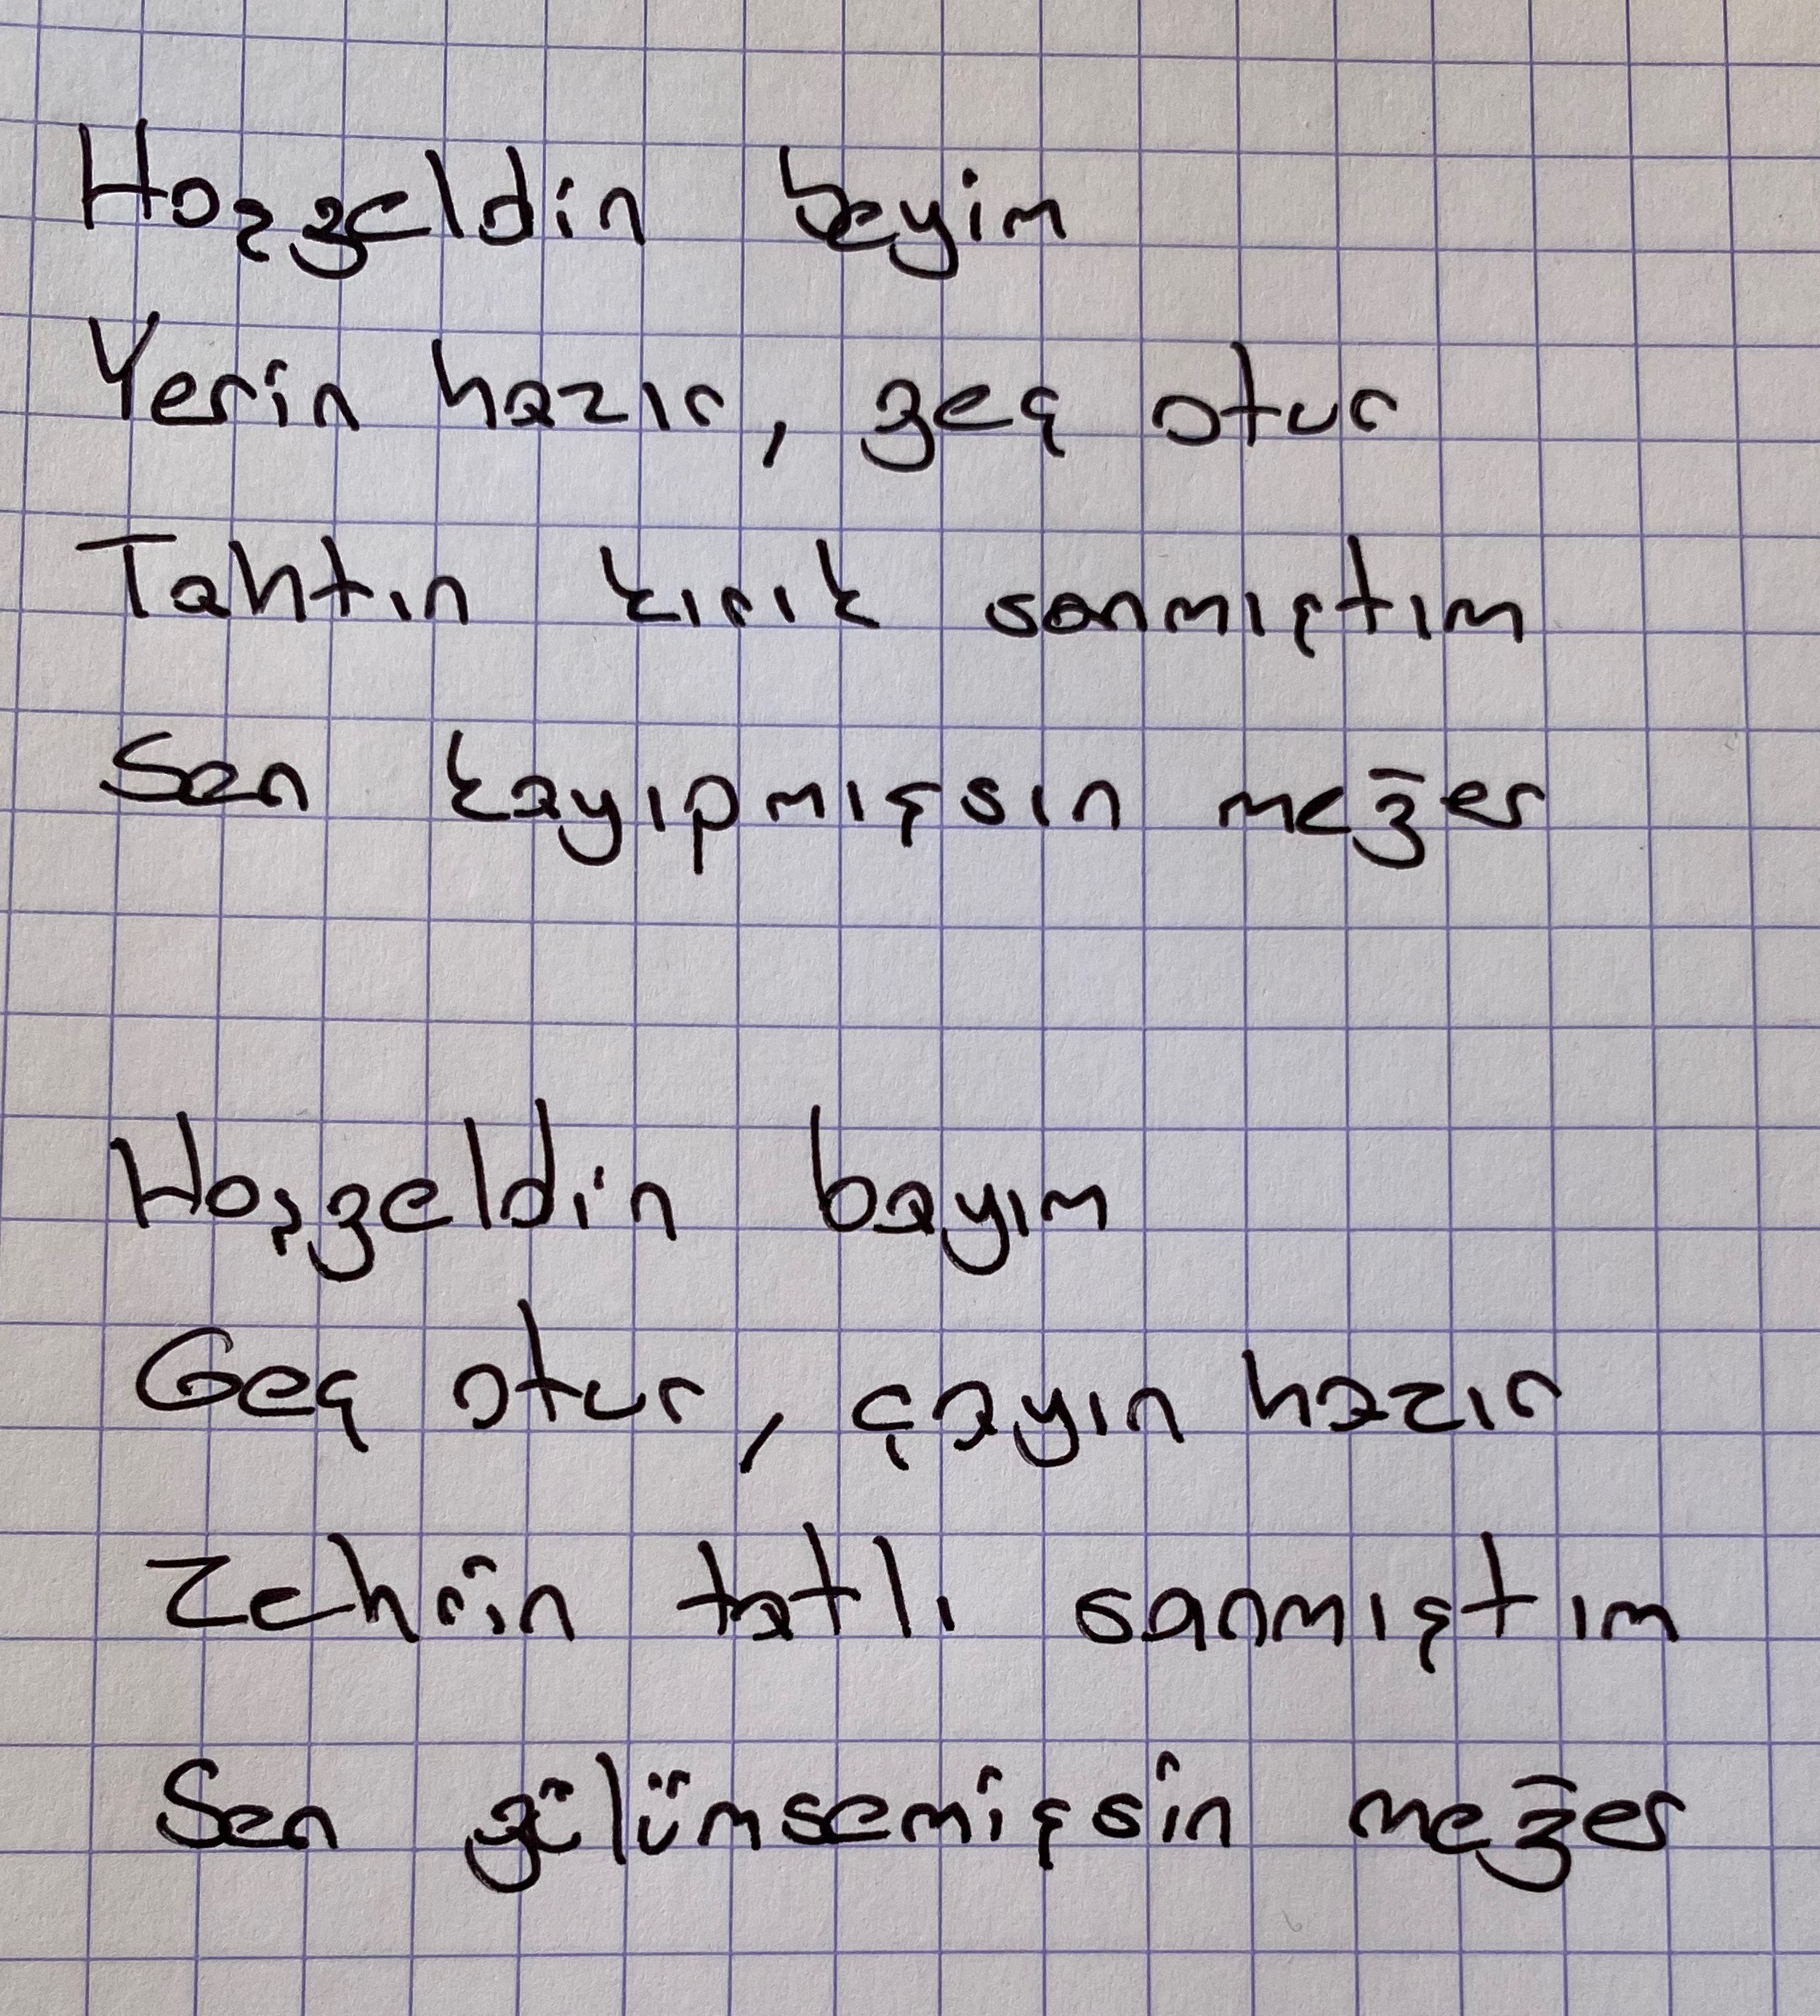 Hoşgeldin beyim
Yerin hazır, geç otur
Tahtın kırık sanmıştım
Sen kayıpmışsın meğer
Hoşgeldin bayım
Geç otur, çayın hazır
Zehrin tatlı sanmıştım
Sen gülümsemişsin meğer